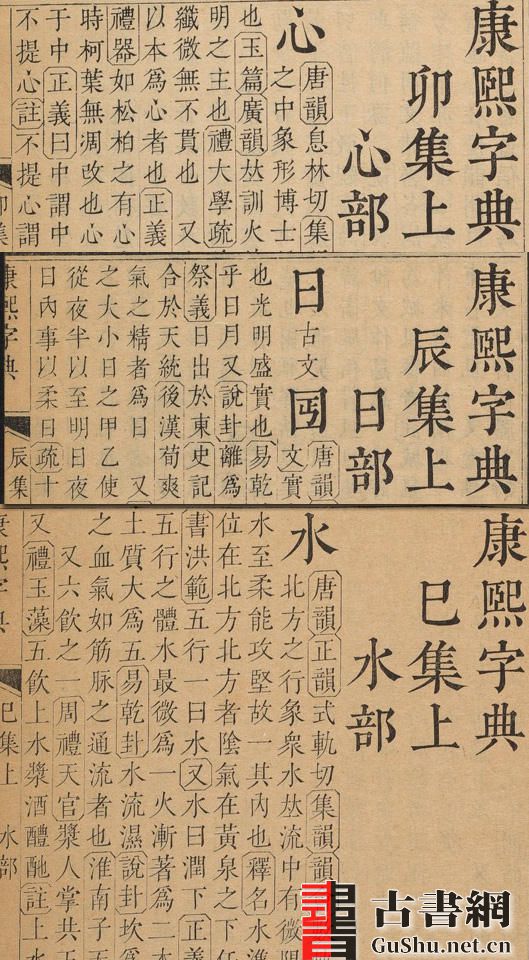 康熙字典
卯集上
心部
心
唐韻息林切集
之中象形博士
也玉篇廣韻𠀤訓火
明之主也禮大學疏
纖微無不貫也 又
以本爲心者也正義
禮器如松柏之有心
時柯葉無凋改也心
于中正義曰中謂中
不提心註不提心謂
康熙字典
辰集上
日部
日古文囸
唐韻
文實
也光明盛實也易乾
乎日月又說卦離爲
祭義日出於東史記
合於天統後漢荀爽
氣之精者爲日 又
之大小日之甲乙使
從夜半以至明日夜
日內事以柔日疏十
康熙字典 辰集
康熙字典
巳集上
水部
水
唐韻正韻式軌切集韻韻
北方之行象衆水𠀤流中有微
水至柔能攻堅故一其內也釋名水準
位在北方北方者陰氣在黃泉之下任
書洪範五行一曰水又水曰潤下正義
五行之體水最微爲一火漸著爲二木
土質大爲五易乾卦水流濕說卦坎爲
之血氣如筋脉之通流者也淮南子天
又六飮之一周禮天官漿人掌共王
又禮玉藻五飮上水漿酒醴酏註上水
康熙字典 巳集上 水部
古書網
GuShu.net.cn